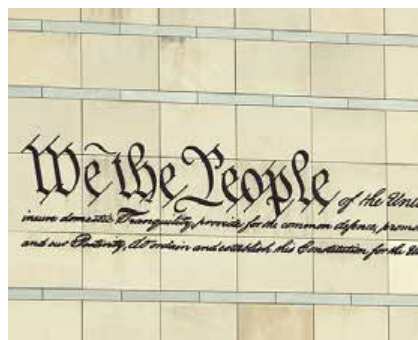 We the People of the Unit
insure domestic Tranquility, provide for the common defence, promo
and our Posterity, do ordain and establish this Constitution for the U